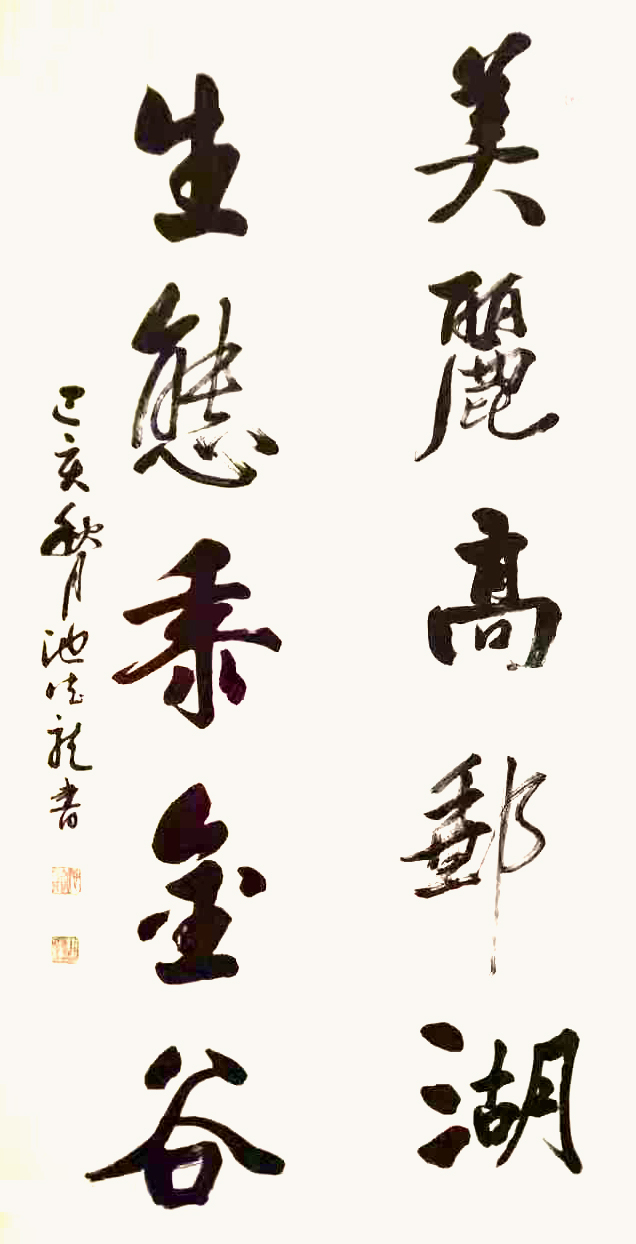 美麗高郵湖
生態黍金谷
己亥秋月池德龍書